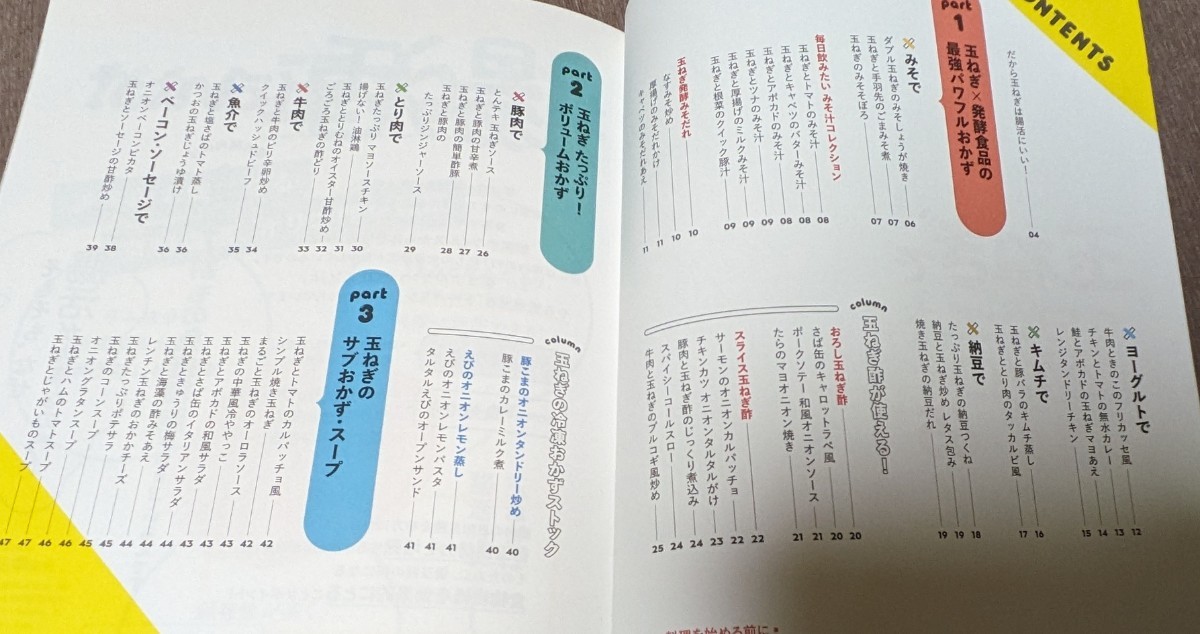 ONTENTS
だから玉ねぎは腸活にいい！ 04
part 1
玉ねぎ×発酵食品の
最強パワフルおかず
みそで
ダブル玉ねぎのみそしょうが焼き 06
玉ねぎと手羽先のごまみそ煮 07
玉ねぎのみそそぼろ 07
毎日飲みたい みそ汁コレクション
玉ねぎとトマトのみそ汁 08
玉ねぎとキャベツのバターみそ汁 08
玉ねぎとアボカドのみそ汁 08
玉ねぎとツナのみそ汁 09
玉ねぎと厚揚げのミルクみそ汁 09
玉ねぎと根菜のクイック豚汁 09
玉ねぎ発酵みそだれ 10
なすみそ炒め 10
厚揚げのみそだれかけ 11
キャベツのみそだれあえ 11
ヨーグルトで
牛肉ときのこのフリカッセ風 12
チキンとトマトの無水カレー 13
鮭とアボカドの玉ねぎマヨあえ 14
レンジタンドリーチキン 15
キムチで
玉ねぎと豚バラのキムチ蒸し 16
玉ねぎととり肉のタッカルビ風 17
納豆で
たっぷり玉ねぎの納豆つくね 18
納豆と玉ねぎ炒め レタス包み 19
焼き玉ねぎの納豆だれ 19
column
玉ねぎ酢が使える！
おろし玉ねぎ酢 20
さば缶のキャロットラペ風 20
ポークソテー 和風オニオンソース 21
たらのマヨオニオン焼き 21
スライス玉ねぎ酢 22
サーモンのオニオンカルパッチョ 22
チキンカツ オニオンタルタルがけ 23
豚肉と玉ねぎ酢のじっくり煮込み 24
スパイシーコールスロー 24
牛肉と玉ねぎのプルコギ風炒め 25
料理を始める前に
part 2
玉ねぎ たっぷり！
ボリュームおかず
豚肉で
とんテキ 玉ねぎソース 26
玉ねぎと豚肉の甘辛煮 27
玉ねぎと豚肉の簡単酢豚 28
玉ねぎと豚肉の
たっぷりジンジャーソース 29
とり肉で
玉ねぎたっぷり マヨソースチキン 30
揚げない！ 油淋鶏 31
玉ねぎととりむねのオイスター甘酢炒め 32
ごろごろ玉ねぎの酢どり 33
牛肉で
玉ねぎと牛肉のピリ辛卵炒め 34
クイックハッシュドビーフ 35
魚介で
玉ねぎと塩さばのトマト蒸し 36
かつおの玉ねぎじょうゆ漬け 36
ベーコン・ソーセージで
オニオンベーコンピカタ 38
玉ねぎとソーセージの甘酢炒め 39
column
玉ねぎの冷凍おかずストック
豚こまのオニオンタンドリー炒め 40
豚こまのカレーミルク煮 40
えびのオニオンレモン蒸し 41
えびのオニオンレモンパスタ 41
タルタルえびのオープンサンド 41
part 3
玉ねぎの
サブおかず・スープ
玉ねぎとトマトのカルパッチョ風 42
シンプル焼き玉ねぎ 42
まるごと玉ねぎのオーロラソース 43
玉ねぎの中華風冷ややっこ 43
玉ねぎとアボカドの和風サラダ 43
玉ねぎとさば缶のイタリアンサラダ 43
玉ねぎときゅうりの梅サラダ 44
玉ねぎと海藻の酢みそあえ 44
レンチン玉ねぎのおかかチーズ 44
玉ねぎたっぷりポテサラ 45
玉ねぎのコーンスープ 45
オニオングラタンスープ 46
玉ねぎとハムのミルクスープ 46
玉ねぎのトマトスープ 47
玉ねぎとじゃがいものスープ 47